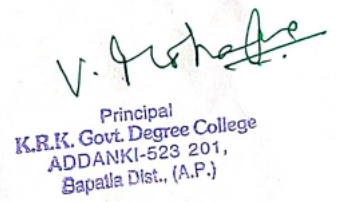 Principal
K.R.K. Govt. Degree College
ADDANKI-523 201,
Bapatla Dist., (A.P.)